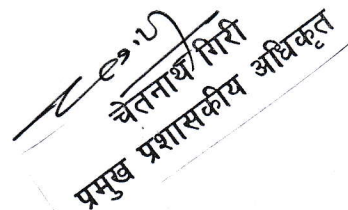 चेतनाथ गिरी
प्रमुख प्रशासकीय अधिकृत